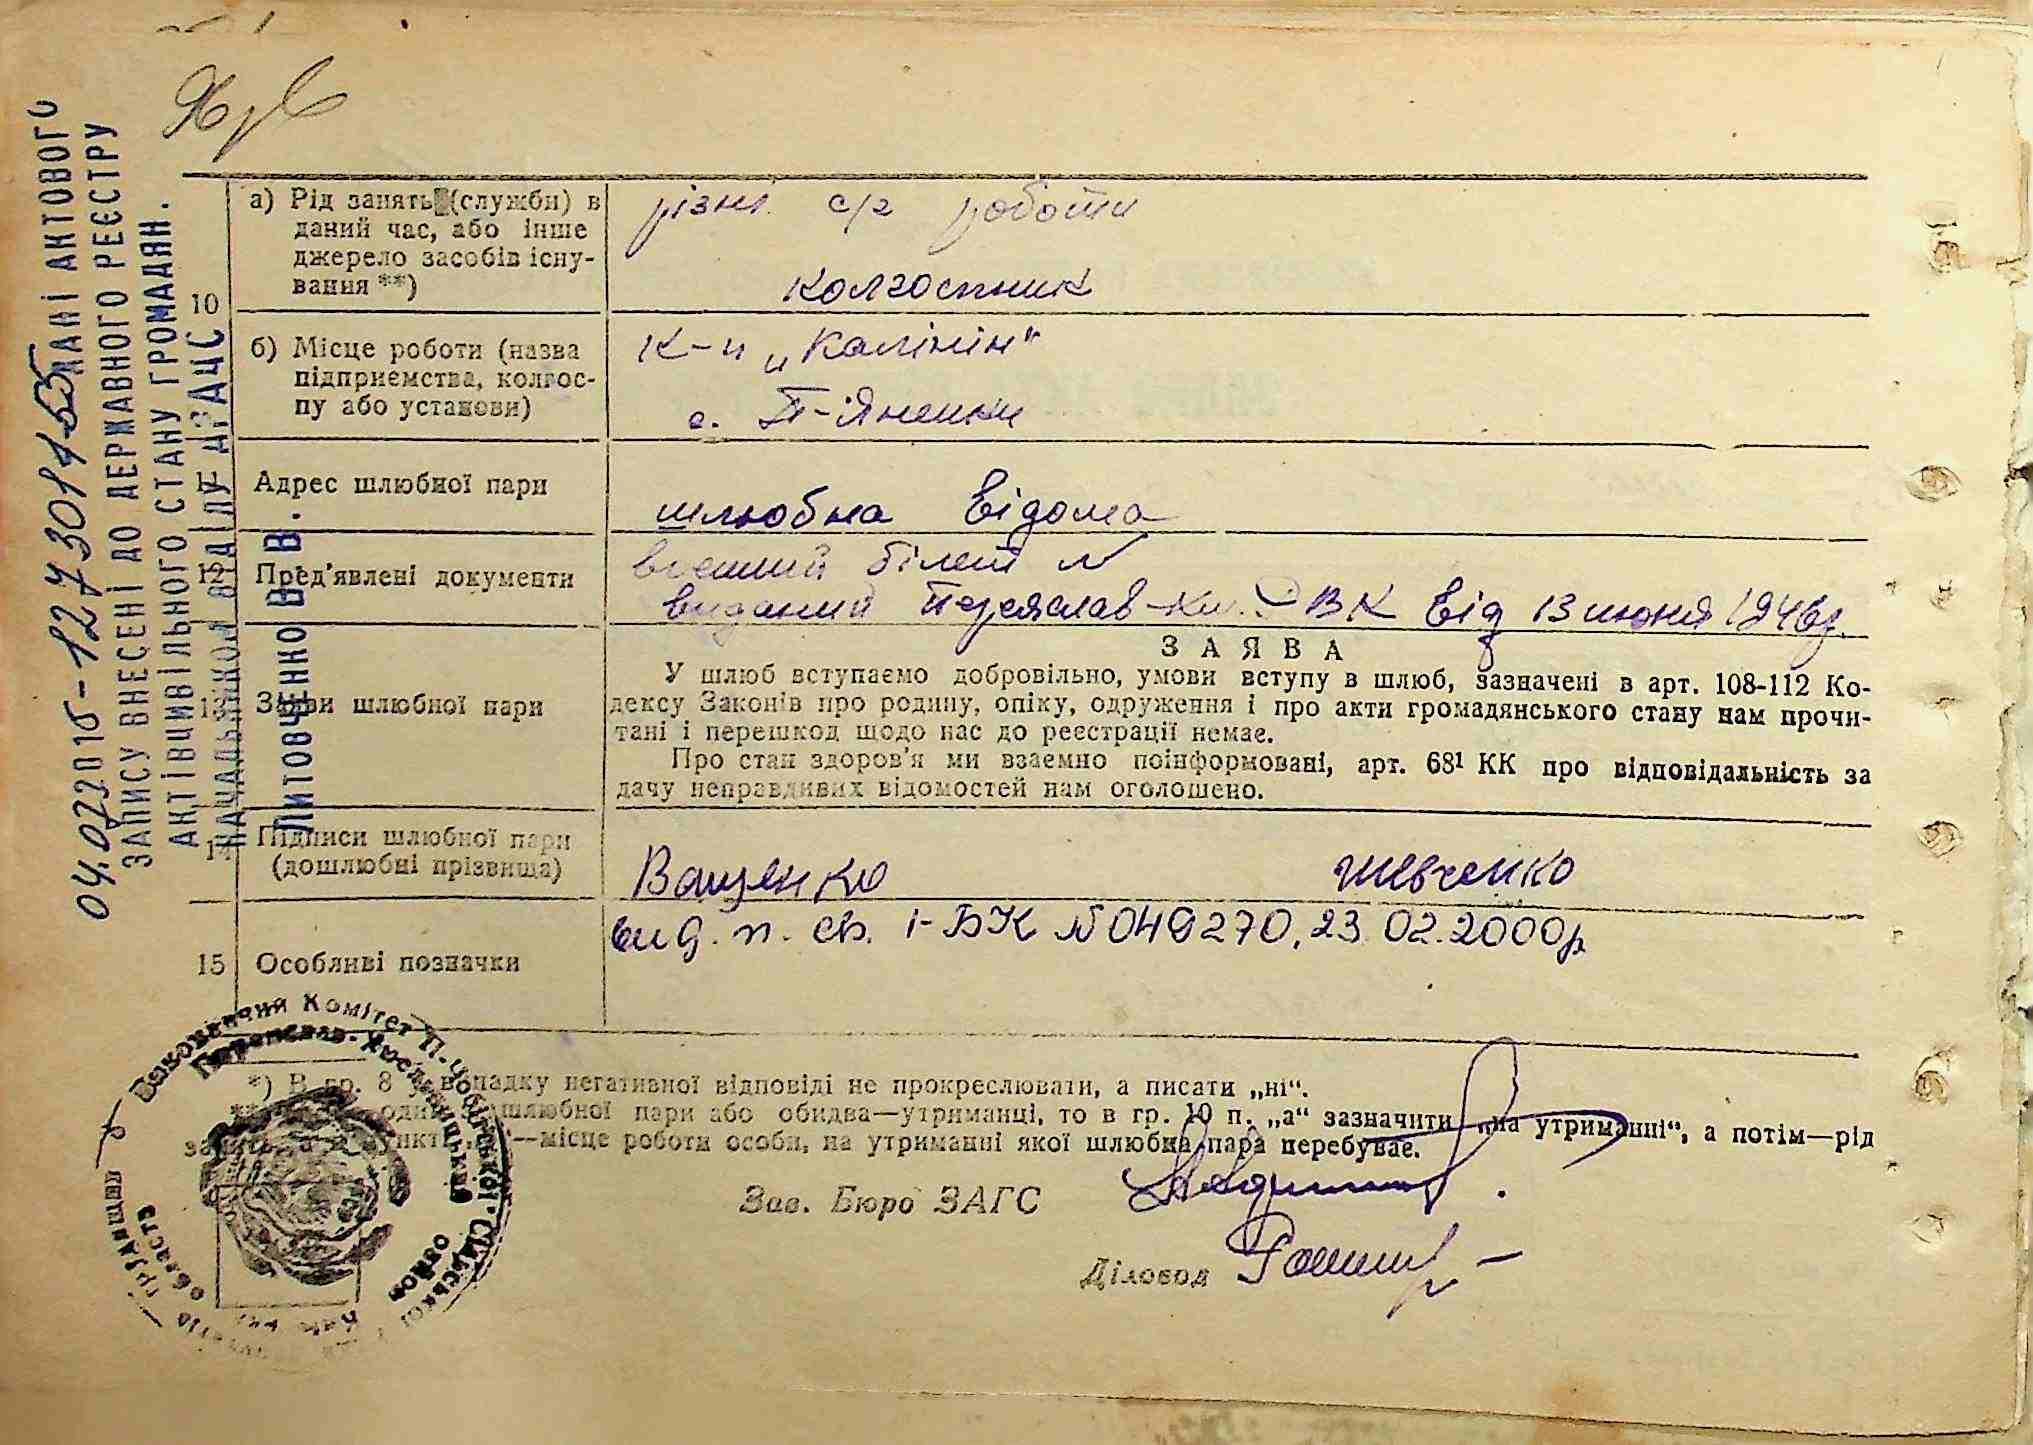 04.07.2010 - 127301455 ДАНІ АКТОВОГО
ЗАПИСУ ВНЕСЕНІ ДО ДЕРЖАВНОГО РЕЄСТРУ
АКТІВ ЦИВІЛЬНОГО СТАНУ ГРОМАДЯН.
НАЧАЛЬНИКОМ ВІДДІЛУ ДРАЦС
ЛИТОВЧЕНКО В.В.
10
а) Рід занять (служби) в
даний час, або інше
джерело засобів існу-
вання **)
різні с/г роботи
колгоспник
б) Місце роботи (назва
підприємства, колгос-
пу або установи)
к-п „Калінін"
с.
Адрес шлюбної пари
шлюбна відома
12 Пред'явлені документи
воєнний білет №
виданий Переяслав-Хм. РВК від 13 июня 1946г.
13 Заяви шлюбної пари
ЗАЯВА
У шлюб вступаємо добровільно, умови вступу в шлюб, зазначені в арт. 108-112 Ко-
дексу Законів про родину, опіку, одруження і про акти громадянського стану нам прочи-
тані і перешкод щодо нас до реєстрації немає.
Про стан здоров'я ми взаємно поінформовані, арт. 68¹ КК про відповідальність за
дачу неправдивих відомостей нам оголошено.
14 Підписи шлюбної пари
(дошлюбні прізвища)
Ващенко Шевченко
15 Особливі позначки
вид. п. св. І-БК №049270, 23.02.2000р
*) В гр. 8 у випадку негативної відповіді не прокреслювати, а писати „ні".
шлюбної пари або обидва—утриманці, то в гр. 10 п. „а" зазначити „на утриманні", а потім—рід
—місце роботи особи, на утриманні якої шлюбна пара перебуває.
Зав. Бюро ЗАГС
Діловод
Виконавчий Комітет
Переяслав-Хмельницький
область